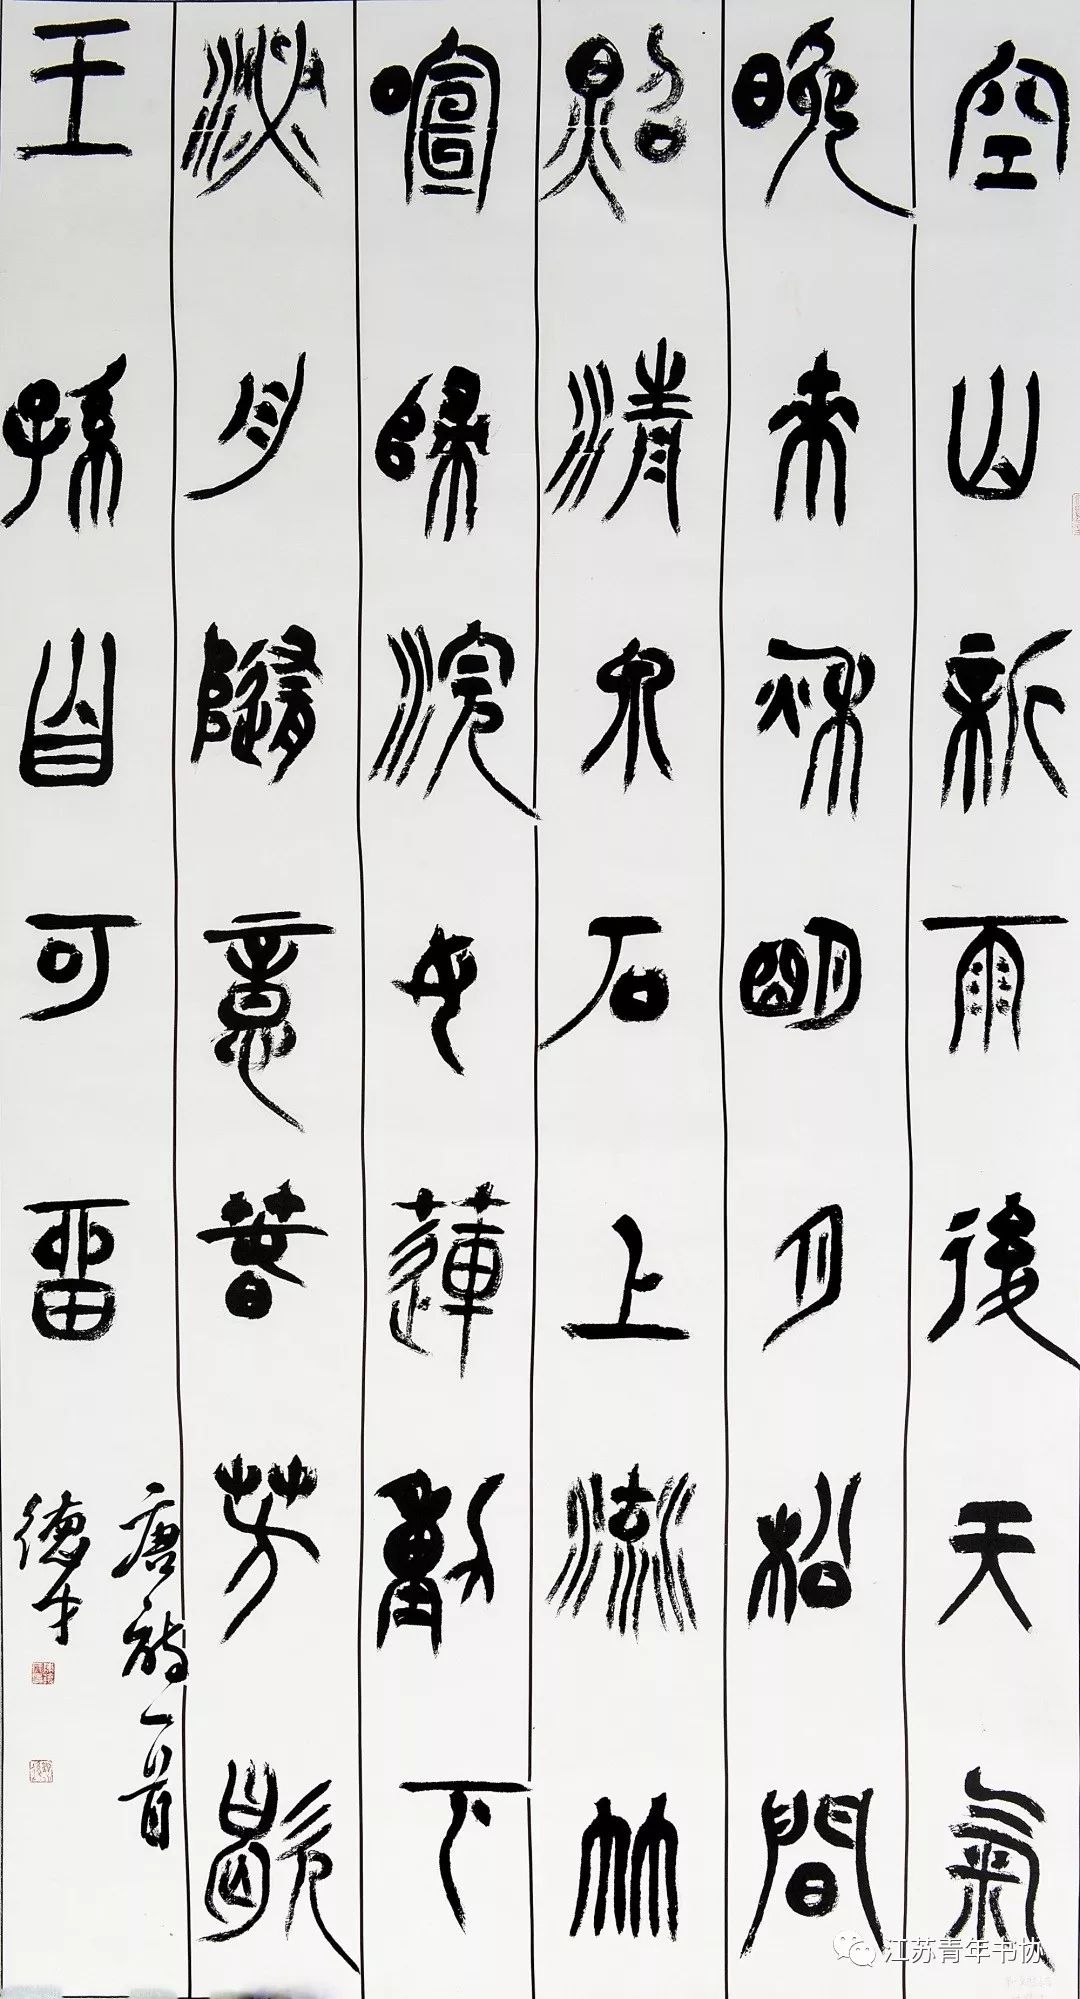 空山新雨後天氣
晚來秋明月松間
照清泉石上流竹
喧歸浣女蓮動下
漁舟隨意春芳歇
王孫自可留
唐詩一首
德
江苏青年书协